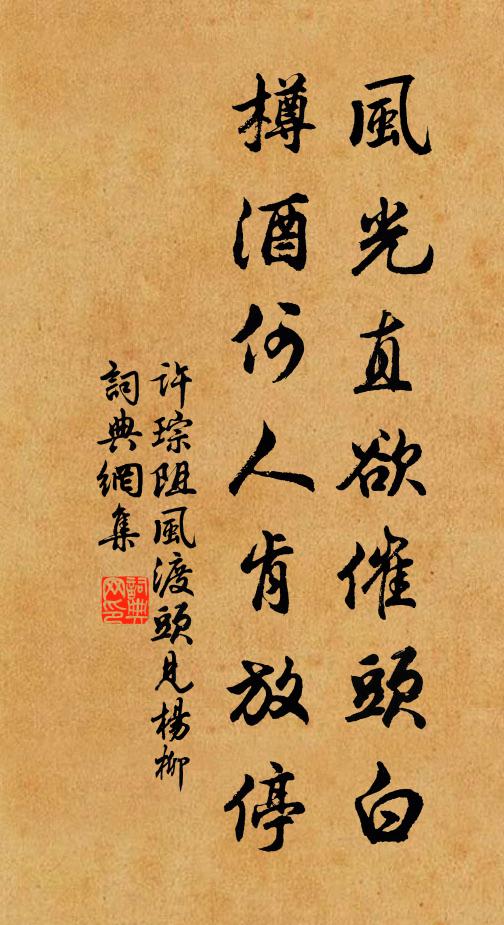 風光直欲催頭白
樽酒何人肯放停
许琮阻風渡頭見楊柳
詞典網集
詞典
网印